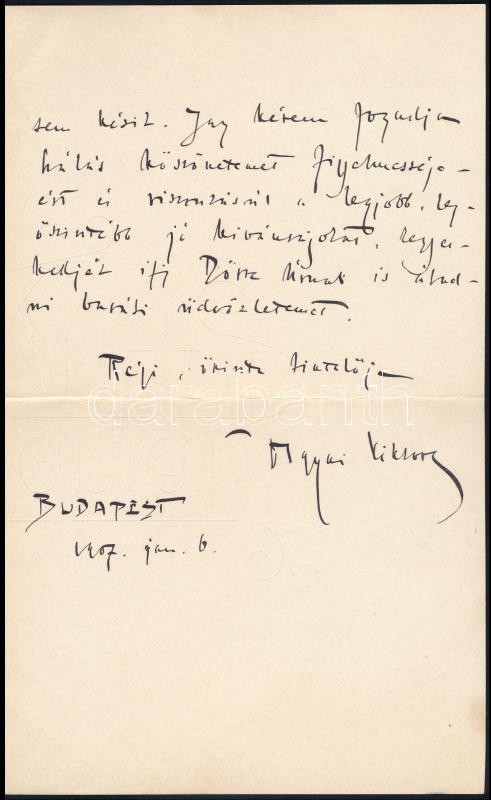 sem készit. Igy kérem fogadja
hálás köszönetemet figyelmessége-
ért és viszonzásúl a legjobb, leg-
őszintébb jó kivánságokat,
ifj Dörre Úrnak is átad-
ni baráti üdvözletemet.
Régi, őszinte tisztelője
Olgyai Viktor
BUDAPEST
1907. jan. 6.
darabanth